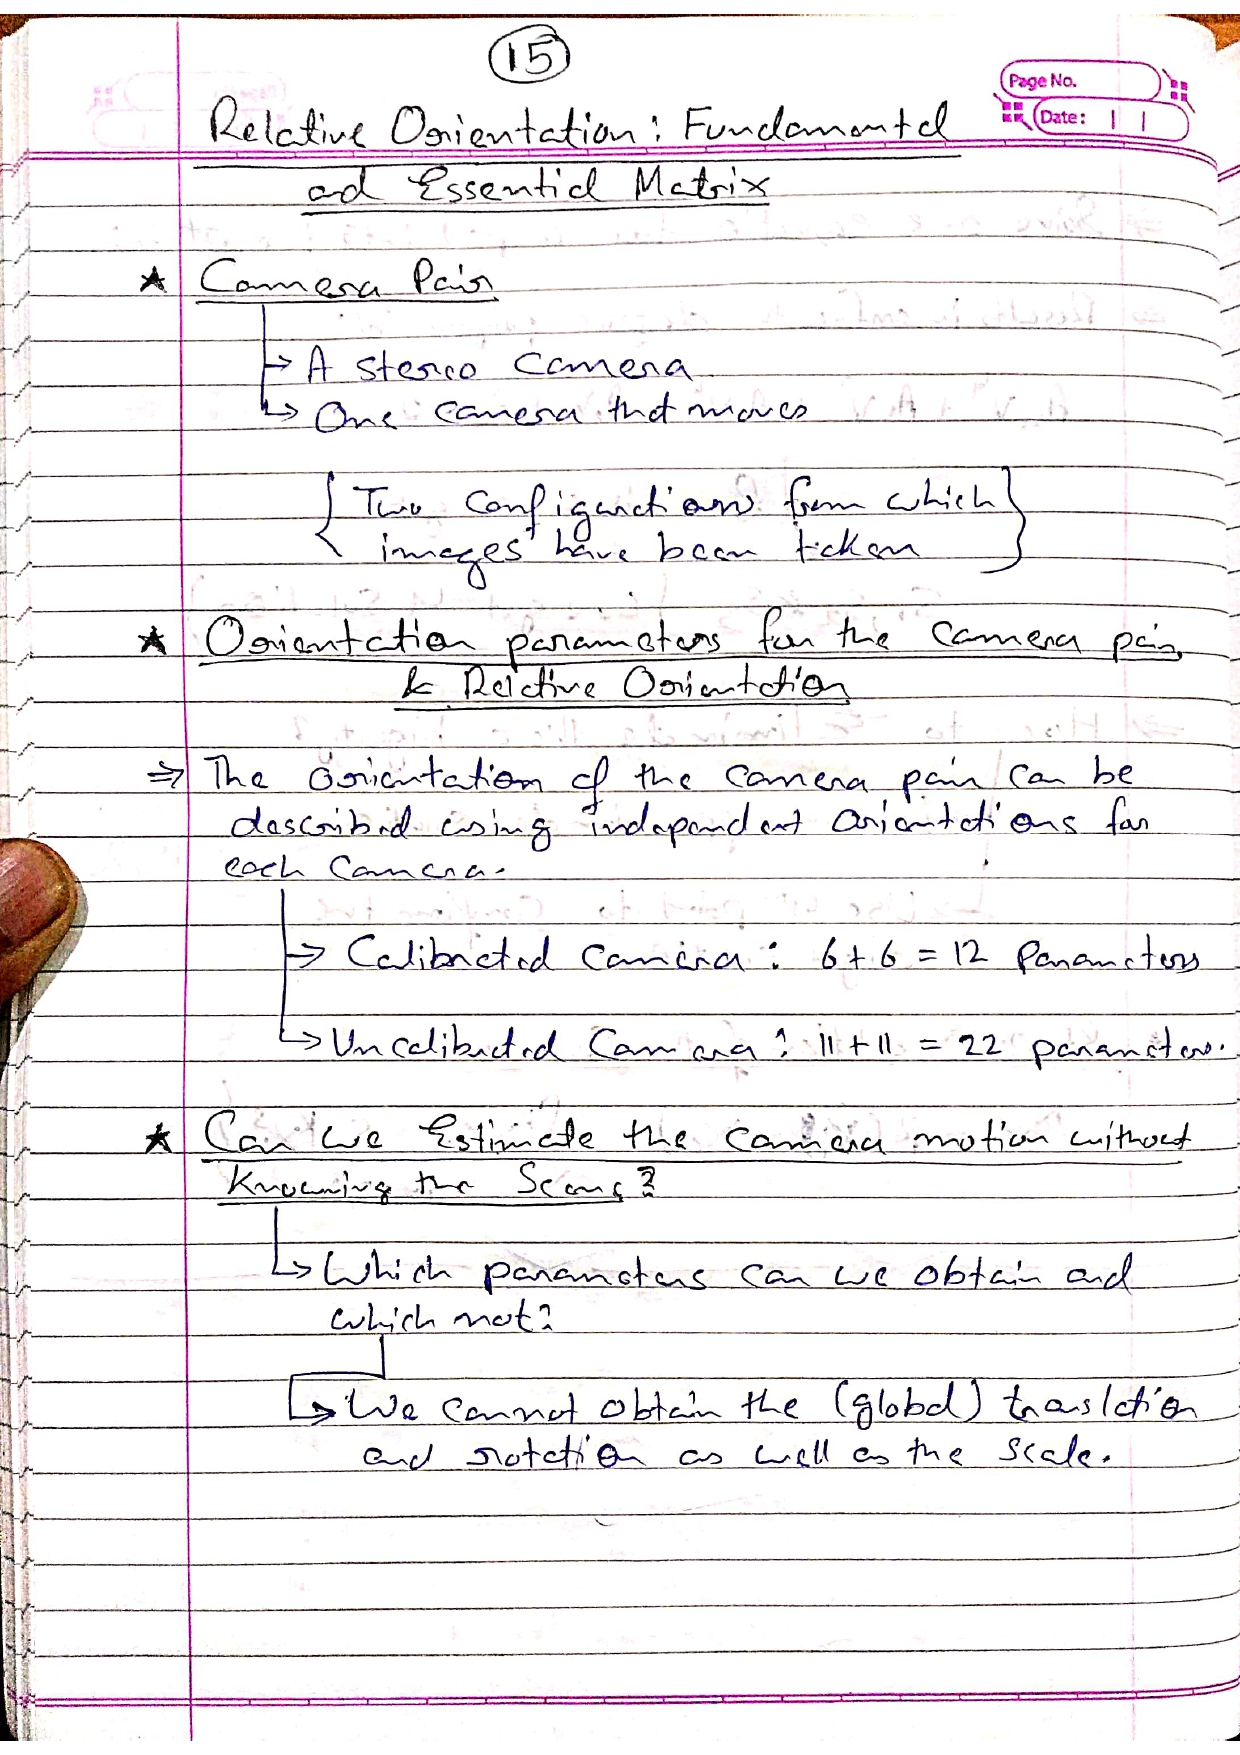 15
Page No.
Date:
Relative Orientation: Fundamental
and Essential Matrix
★ Camera Pair
↳ A stereo camera
↳ One camera that moves
{ Two configurations from which
images have been taken }
★ Orientation parameters for the camera pair
& Relative Orientation
⇒ The orientation of the camera pair can be
described using independent orientations for
each camera.
↳ Calibrated camera : 6+6 = 12 parameters
↳ Uncalibrated camera : 11+11 = 22 parameters.
★ Can we Estimate the camera motion without
Knowing the Scene?
↳ Which parameters can we obtain and
which not?
↳ We cannot obtain the (global) translation
and rotation as well as the scale.